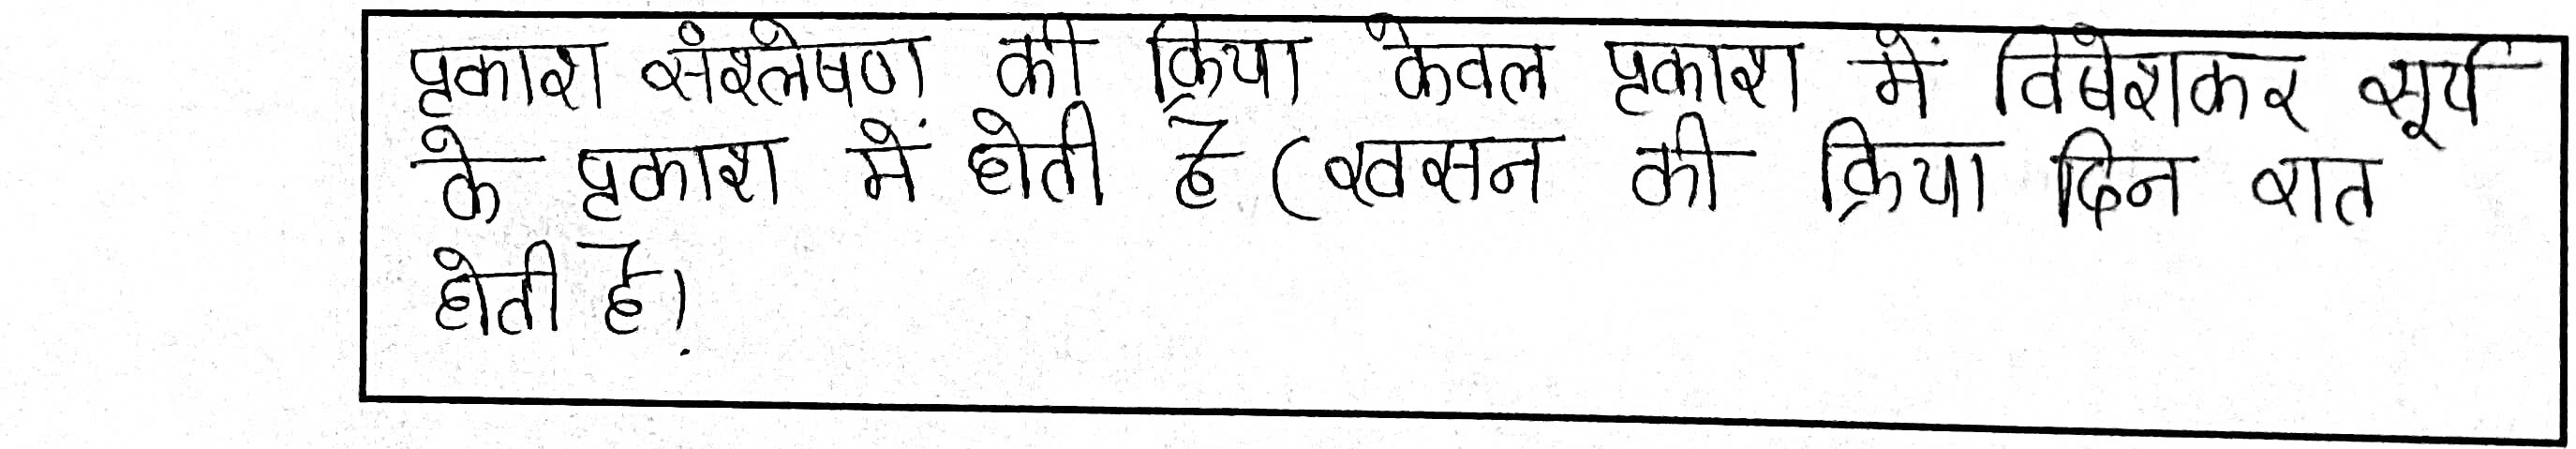 प्रकाश संश्लेषण की क्रिया केवल प्रकाश में विषेशकर सूर्य
के प्रकाश में होती है (श्वसन की क्रिया दिन रात
होती है।